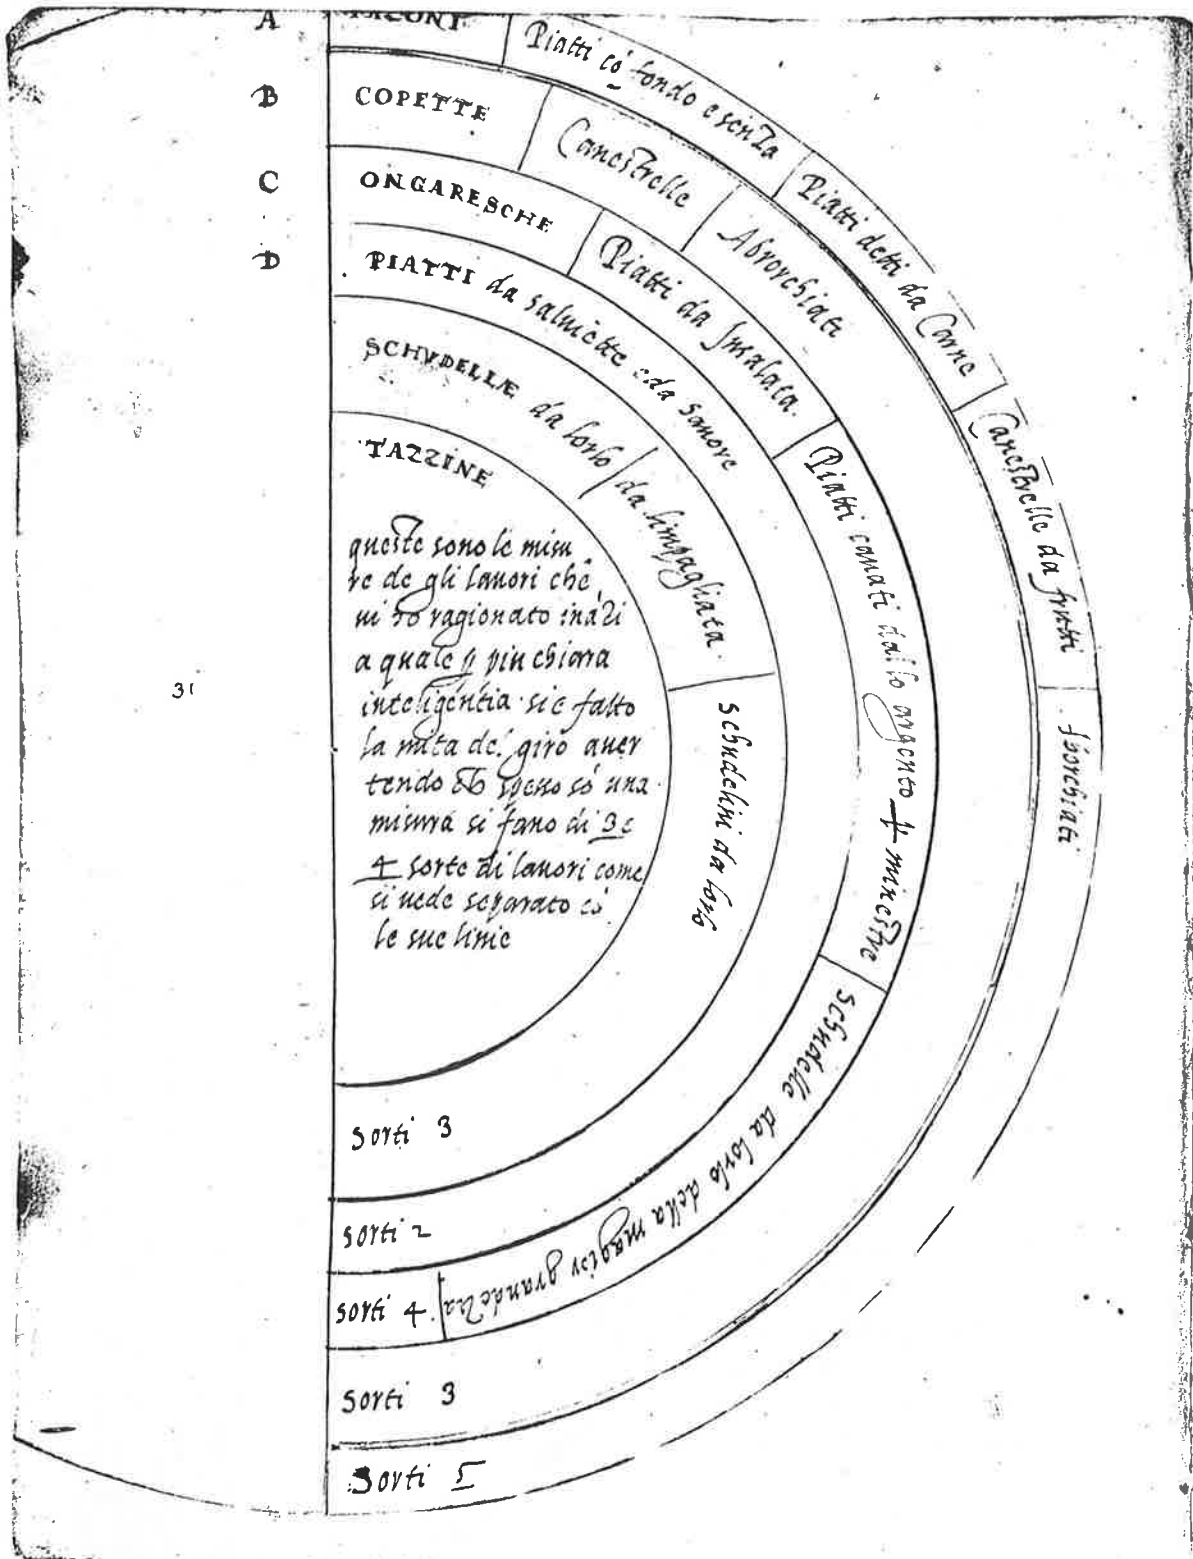 A
Piatti có fondo e senza
Piatti detti da Carne
Canestrelle da frutti
sborchiati
B
COPETTE
Canestrelle
Abrorchiati
C
ONGARESCHE
Piatti da Insalata.
Piatti cavati dallo argento
minestre
Schudelle da lorlo della magior grandeza
D
PIATTI da salviette e da savore
SCHVDELLÆ da lorlo
da limpagliata.
Schudelini da lorlo
TAZZINE
queste sono le misu
re de gli lauori che
ui ho ragionato inázi
a quale più chiara
inteligentia si è fatto
la mita del giro auer
tendo spesso só una
misura si fano di 3 e
4 sorte di lauori come
si uede separato có
le sue linie
31
Sorti 3
Sorti 2
Sorti 4
Sorti 3
Sorti 5